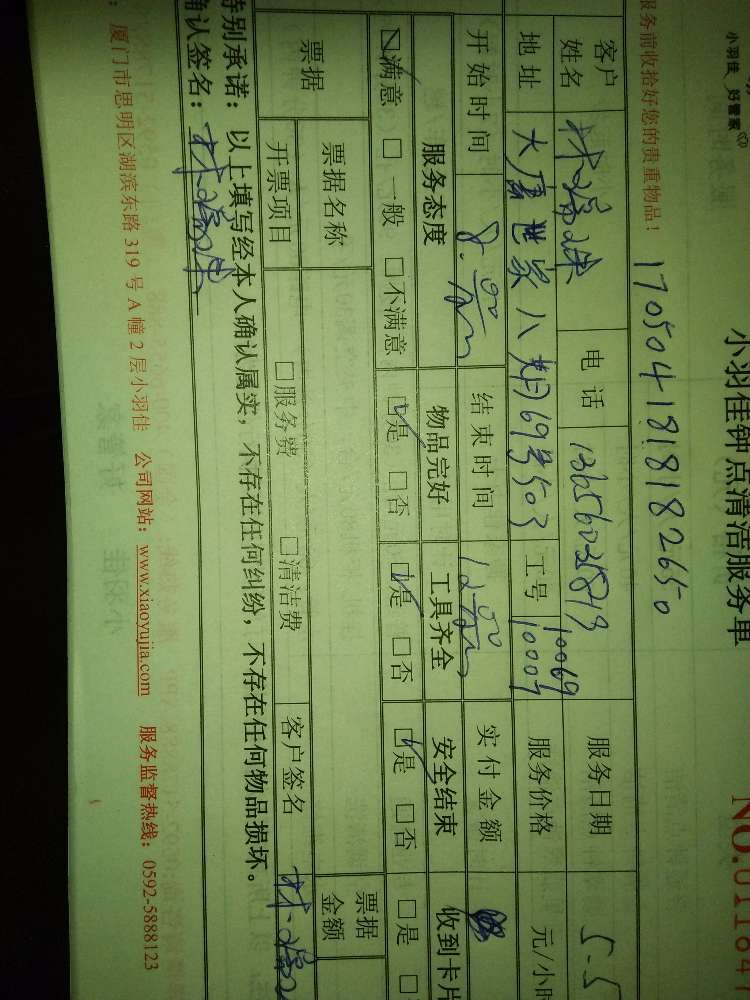 小羽佳 好管家
小羽佳钟点清洁服务单
NO.011847
服务前收拾好您的贵重物品！
1705041818182650
客户姓名 电话 服务日期 5-5
地址 大唐世家八期69号503 工号 10069 10007 服务价格 元/小时
开始时间 8:00 结束时间 12:00 实付金额
服务态度 物品完好 工具齐全 安全结束 收到卡片
☑满意 □一般 □不满意 ☑是 □否 ☑是 □否 ☑是 □否 □是
票据 票据名称 票据金额
开票项目 □服务费 □清洁费 客户签名
特别承诺：以上填写经本人确认属实，不存在任何纠纷，不存在任何物品损坏。
确认签名：
：厦门市思明区湖滨东路 319 号 A 幢 2 层小羽佳 公司网站：www.xiaoyujia.com 服务监督热线：0592-5888123